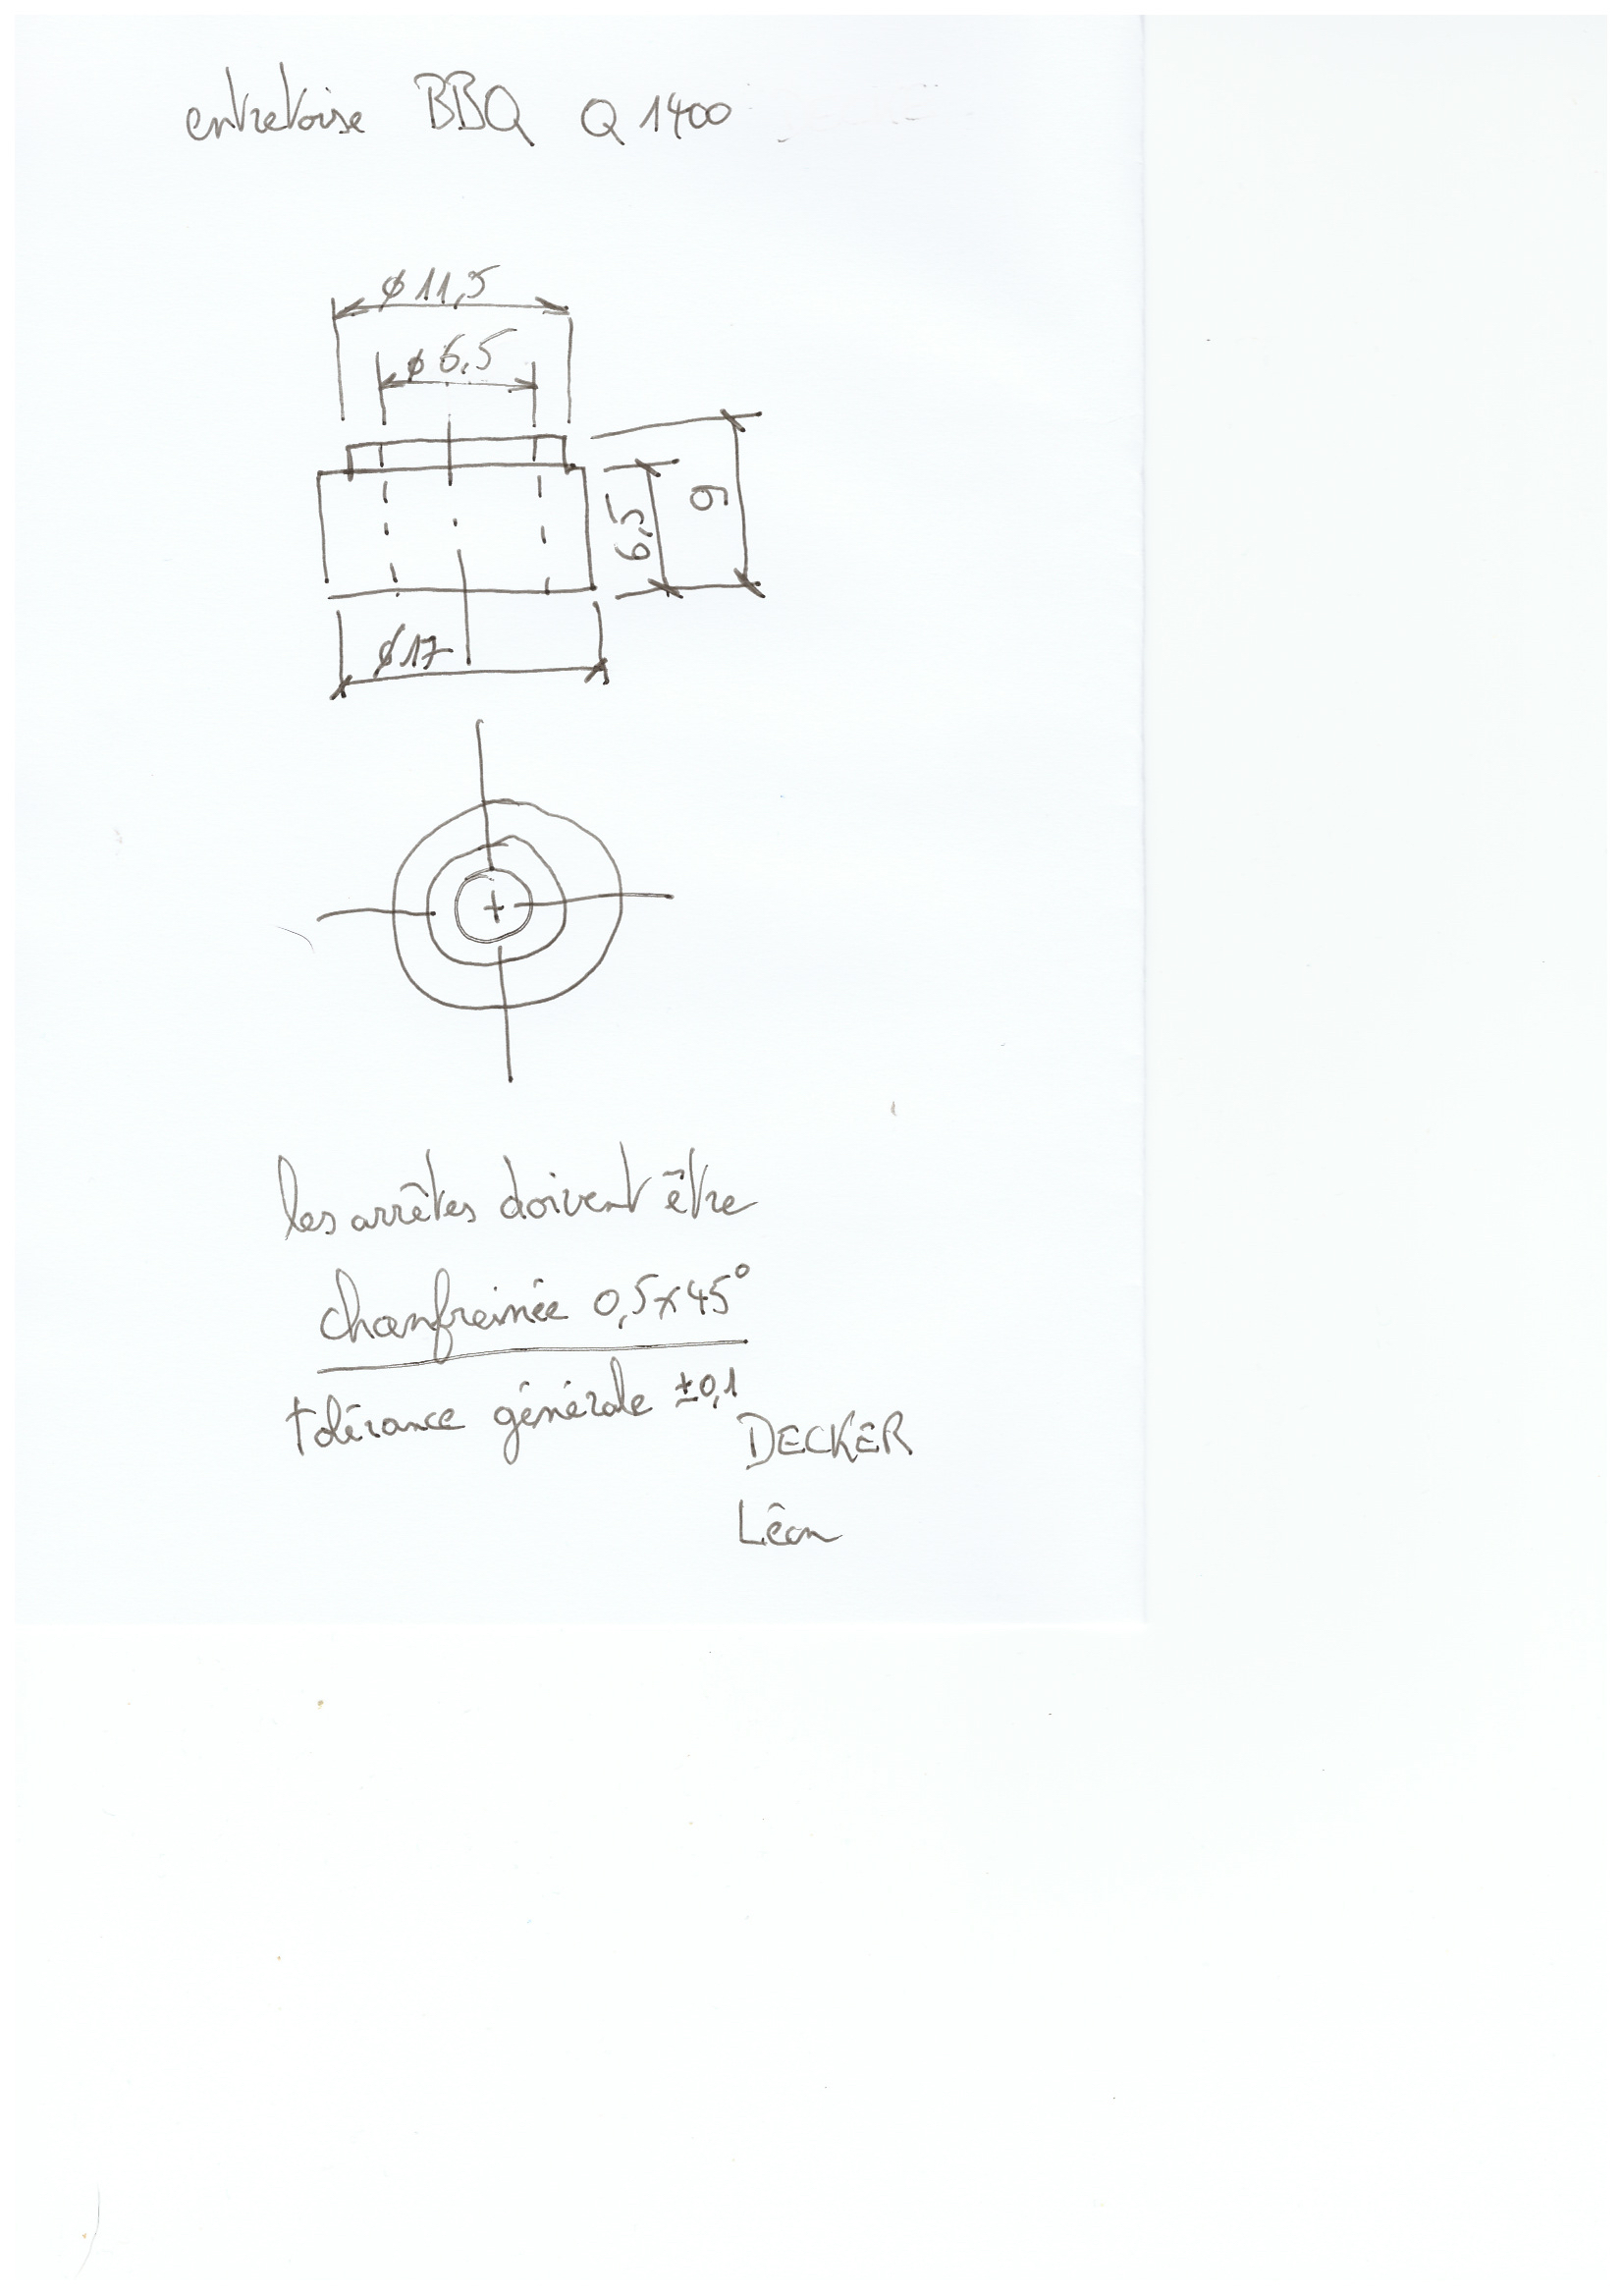 entretoise BBQ Q 1400
ø 11,5
ø 6,5
6,5
9
ø 17
les arrêtes doivent être
chanfreinée 0,5x45°
tolérance générale ±0,1
DECKER
Léon